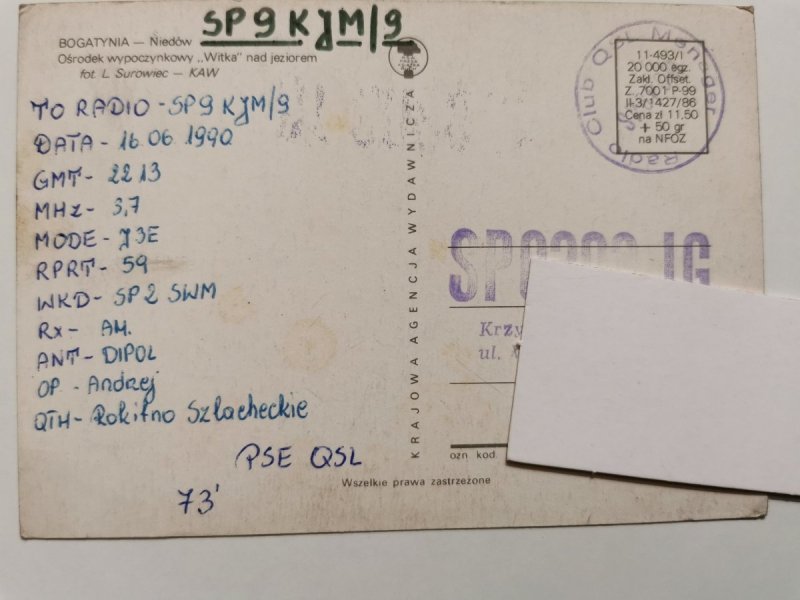 SP9KJM/9
BOGATYNIA — Niedów
Ośrodek wypoczynkowy „Witka" nad jeziorem
fot. L. Surowiec — KAW
TO RADIO - SP9KJM/9
DATA - 16.06 1990
GMT - 2213
MHz - 3,7
MODE - J3E
RPRT - 59
WKD - SP2SWM
Rx - AM.
ANT - DIPOL
OP - Andrzej
QTH - Rokitno Szlacheckie
PSE QSL
73'
KRAJOWA AGENCJA WYDAWNICZA
Radio Club QSL Manager
11-493/I
20 000 egz.
Zakł. Offset.
Z. 7001 P-99
II-3/1427/86
Cena zł 11,50
+ 50 gr
na NFOZ
Krzy
ul.
ozn kod.
Wszelkie prawa zastrzeżone